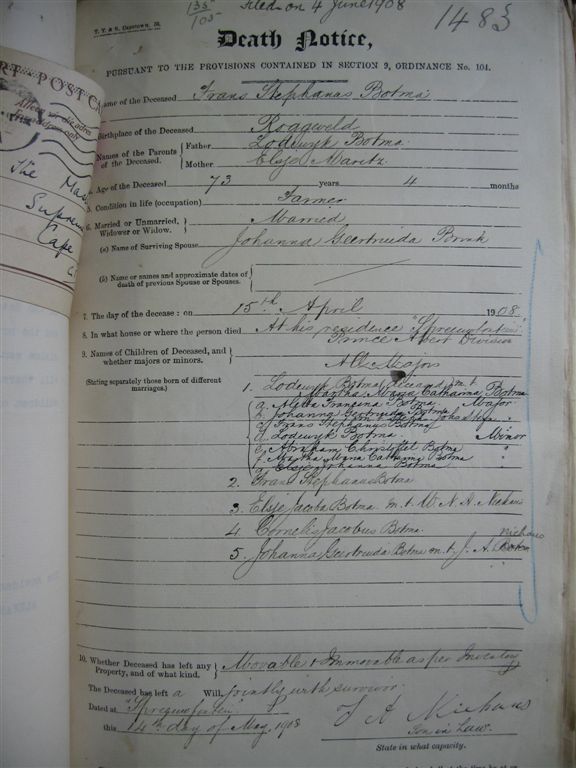 135/105
Filed on 4 June 1908
1483
T. T. & S. Capetown, 58.
Death Notice,
PURSUANT TO THE PROVISIONS CONTAINED IN SECTION 9, ORDINANCE No. 104.
Name of the Deceased Frans Stephanas Botma
Birthplace of the Deceased Roggeveld
Names of the Parents of the Deceased. Father Lodewyk Botma
Mother Elsje Maritz
4. Age of the Deceased 73 years 4 months
5. Condition in life (occupation) Farmer
6. Married or Unmarried, Widower or Widow. Married
(a) Name of Surviving Spouse Johanna Geertruida Brink
(b) Name or names and approximate dates of death of previous Spouse or Spouses.
7. The day of the decease : on 15th April 1908.
8. In what house or where the person died At his residence "Spreeuwfontein"
Prince Albert Division
9. Names of Children of Deceased, and whether majors or minors.
All Majors
(Starting separately those born of different marriages.)
1. Lodewyk Botma deceased m. t.
Martha Maria Catharina Botma
a. Aletta Fransina Botma Major
b. Johanna Geertruida Botma
c. Frans Stephanus Botma
d. Lodewyk Botma Minor
e. Abraham Christoffel Botma "
f. Martha Maria Catharina Botma "
g. Elsje Johanna Botma "
2. Frans Stephanus Botma
3. Elsje Jacoba Botma m. t. W. N. H. Niehaus
4 Cornelis Jacobus Botma.
5. Johanna Geertruida Botma m. t. J. A. Niehaus
10. Whether Deceased has left any Property, and of what kind. Movable & Immovable as per Inventory
The Deceased has left a Will, jointly with survivor.
Dated at "Spreeuwfontein"
this 14th day of May, 1908
J A Niehaus
Son in Law.
State in what capacity.
RT POST C
The Mas
Supreme
Cape